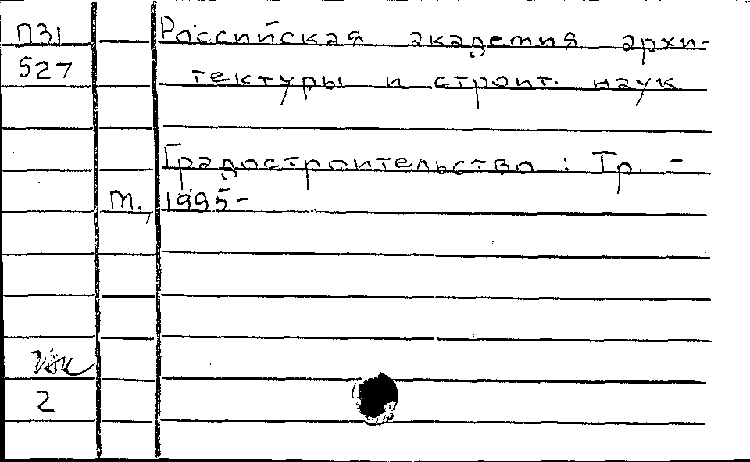 П31
527
Российская академия архи-
тектуры и строит. наук
Градостроительство : Тр. -
М., 1995-
2